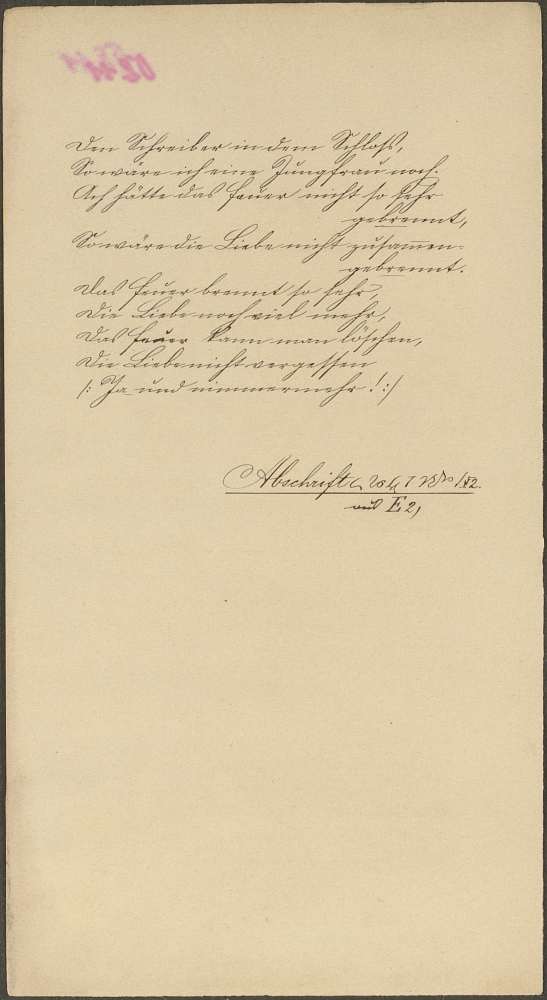 Den Schreiber in dem Schloß,
So wäre ich eine Jungfrau noch.
Ach hätte das Feuer nicht so sehr
gebrennt,
So wäre die Liebe nicht zusammen-
gebrennt.
Das Feuer brennt so sehr,
Die Liebe noch viel mehr,
Das Feuer kann man löschen,
Die Liebe nicht vergessen
/: Ja und nimmermehr! :/
Abschrift
aus E 2,